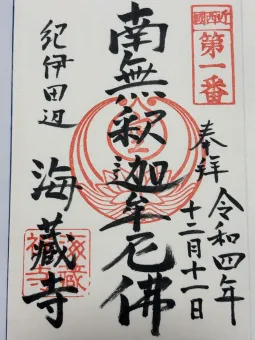 奉拝
令和四年
十二月十一日
第一番
南無釈迦牟尼佛
紀伊田辺
海藏寺